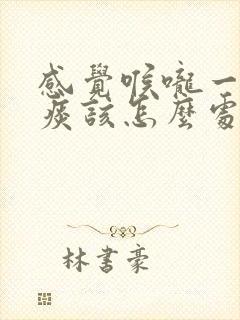 感覺喉嚨一
痰該怎麼處
林書豪